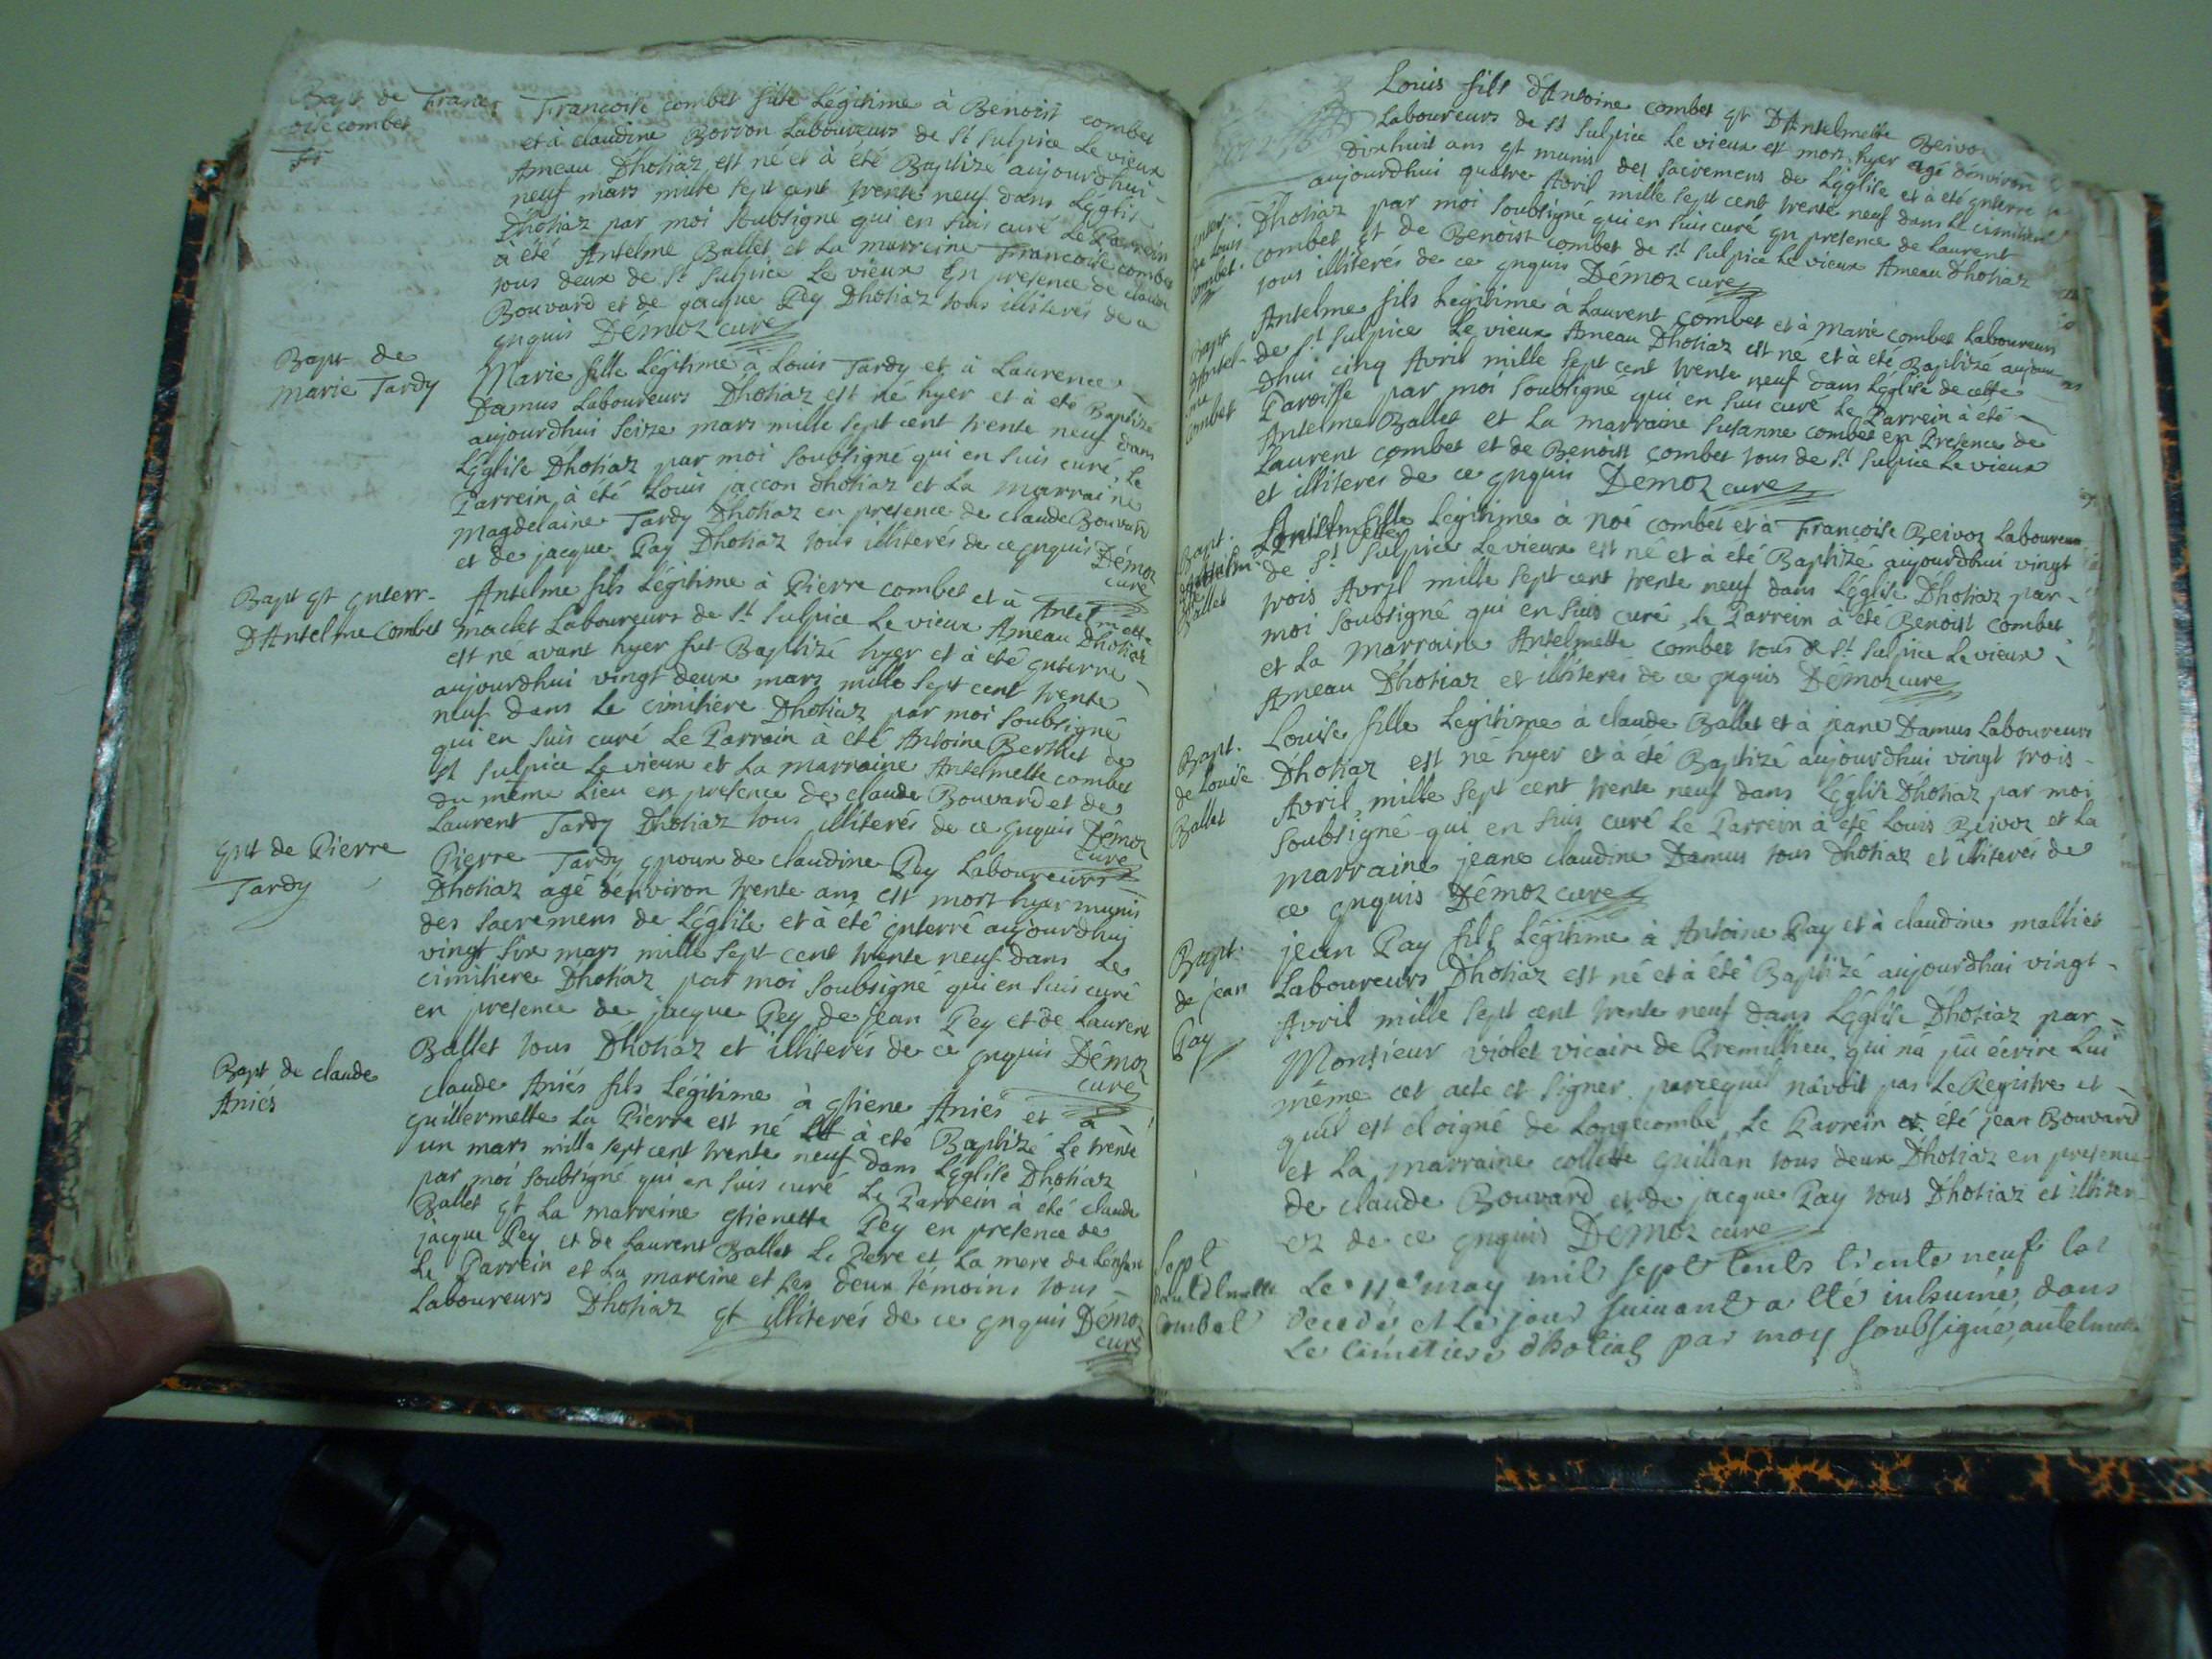 Bapt de Franç
oise combet
Françoise combet fille Légitime à Benoist combet
et à claudine Borron Laboureurs de St Sulpice Le vieux
Ameau Dhotiaz est né et à été Baptizé aujourdhui
neuf mars mille sept cent trente neuf dans Léglise
Dhotiaz par moi soubsigné qui en suis curé Le Parrein
à été Antelme Ballet et La marreine Françoise combet
tous deux de St Sulpice Le vieux En presence de claude
Bouvard et de jacque Pey Dhotiaz tous illiterés de ce
enquis Démoz curé
Bapt de
marie Tardy
Marie fille Légitime à Louis Tardy et à Laurence
Damus Laboureurs Dhotiaz est né hyer et à été Baptizé
aujourdhui seize mars mille sept cent trente neuf dans
Léglise Dhotiaz par moi soubsigné qui en suis curé Le
Parrein à été Louis jaccon dhotiaz et La marraine
Magdelaine Tardy Dhotiaz en presence de claude Bouvard
et de jacque Pay Dhotiaz tous illiterés de ce enquis Démoz
curé
Bapt et enterr
D'Antelme Combet
Antelme fils Légitime à Pierre combet et à Antelmette
maclet Laboureurs de St Sulpice Le vieux Ameau Dhotiaz
est né avant hyer fut Baptizé hyer et à été enterré
aujourdhui vingt deux mars mille sept cent trente
neuf dans Le cimitière Dhotiaz par moi soubsigné
qui en suis curé Le Parrain à été Antoine Berthet de
St Sulpice Le vieux et La marraine Antelmette combet
du même Lieu en presence de claude Bouvard et de
Laurent Tardy Dhotiaz tous illiterés de ce enquis Démoz
curé
ent de Pierre
Tardy
Pierre Tardy epoux de claudine Pey Laboureurs
Dhotiaz agé d'environ trente ans est mort hyer munis
des sacremens de Léglise et à été enterré aujourdhui
vingt six mars mille sept cent trente neuf dans Le
cimitiere Dhotiaz par moi soubsigné qui en suis curé
en presence de jacque Pey de jean Pey et de Laurent
Ballet tous Dhotiaz et illiterés de ce enquis Démoz
curé
Bapt de claude
Aniés
claude Aniés fils Légitime à etiene Aniés et à
guillermette La Pierre est né et à été Baptizé Le trente
un mars mille sept cent trente neuf dans Léglise Dhotiaz
par moi soubsigné qui en suis curé Le Parrein à été claude
Ballet et La marreine etienette Pey en presence de
jacque Pey et de Laurent Ballet Le Pere et La mere de Lenfan
Le Parrein et La mareine et Les deux témoins tous
Laboureurs Dhotiaz et illiterés de ce enquis Démoz
curé
enter
de Louis
combet
Louis fils d'Antoine combet et D'Antelmette Beivoz
Laboureurs de St Sulpice Le vieux est mort hyer agé d'environ
dixhuit ans et munis des sacremens de Léglise et à été enterré
aujourdhui quatre Avril mille sept cent trente neuf dans Le cimitiere
Dhotiaz par moi soubsigné qui en suis curé en presence de Laurent
combet et de Benoist combet de St Sulpice Le vieux Ameau dhotiaz
tous illiterés de ce enquis Démoz curé
Bapt
d'Antel-
me
Combet
Antelme fils Legitime à Laurent combet et à Marie combet Laboureurs
de St Sulpice Le vieux Ameau Dhotiaz est né et à été Baptizé aujour
dhui cinq Avril mille sept cent trente neuf dans Léglise de cette
Paroisse par moi soubsigné qui en suis curé Le Parrein à été
Antelme Ballet et La marraine Susanne combet en Presence de
Laurent combet et de Benoist combet tous de St Sulpice Le vieux
et illiterés de ce enquis Démoz curé
Bapt.
Ballet
Antelmette fille Legitime à noé combet et à Françoise Beivoz Laboureurs
de St Sulpice Le vieux est né et à été Baptizé aujourdhui vingt
trois Avril mille sept cent trente neuf dans Léglise Dhotiaz par
moi soubsigné qui en suis curé, Le Parrein à été Benoist combet
et La Marraine Antelmette combet tous de St Sulpice Le vieux
Ameau Dhotiaz et illiterés de ce enquis Démoz curé
Bapt.
de Louise
Ballet
Louise fille Legitime à claude Ballet et à jeane Damus Laboureurs
Dhotiaz est né hyer et à été Baptizé aujourdhui vingt trois
Avril mille sept cent trente neuf dans Léglise Dhotiaz par moi
soubsigné qui en suis curé Le Parrein à été Louis Beivoz et La
marraine jeane claudine Damus tous Dhotiaz et illiterés de
ce enquis Démoz curé
Bapt.
de jean
Pay
jean Pay fils Légitime à Antoine Pay et à claudine mallier
Laboureurs Dhotiaz est né et à été Baptizé aujourdhui vingt
Avril mille sept cent trente neuf dans Léglise Dhotiaz par
Monsieur violet vicaire de Premillieu, qui n'a pû écrire Lui
même cet acte et signer, parcequil n'avoit pas Le Registre et
qu'il est eloigné de Longecombe, Le Parrein à été jean Bouvard
et La marraine collette guillan tous deux Dhotiaz en presence
de claude Bouvard et de jacque Pay tous Dhotiaz et illiter
ez de ce enquis Démoz curé
Sept
Combet
Le 11e may mil sept cents trente neuf est
decedée et le jour suivant a été inhumée dans
Le cimetiere d'hotiaz par moy soubsigné, antelmette